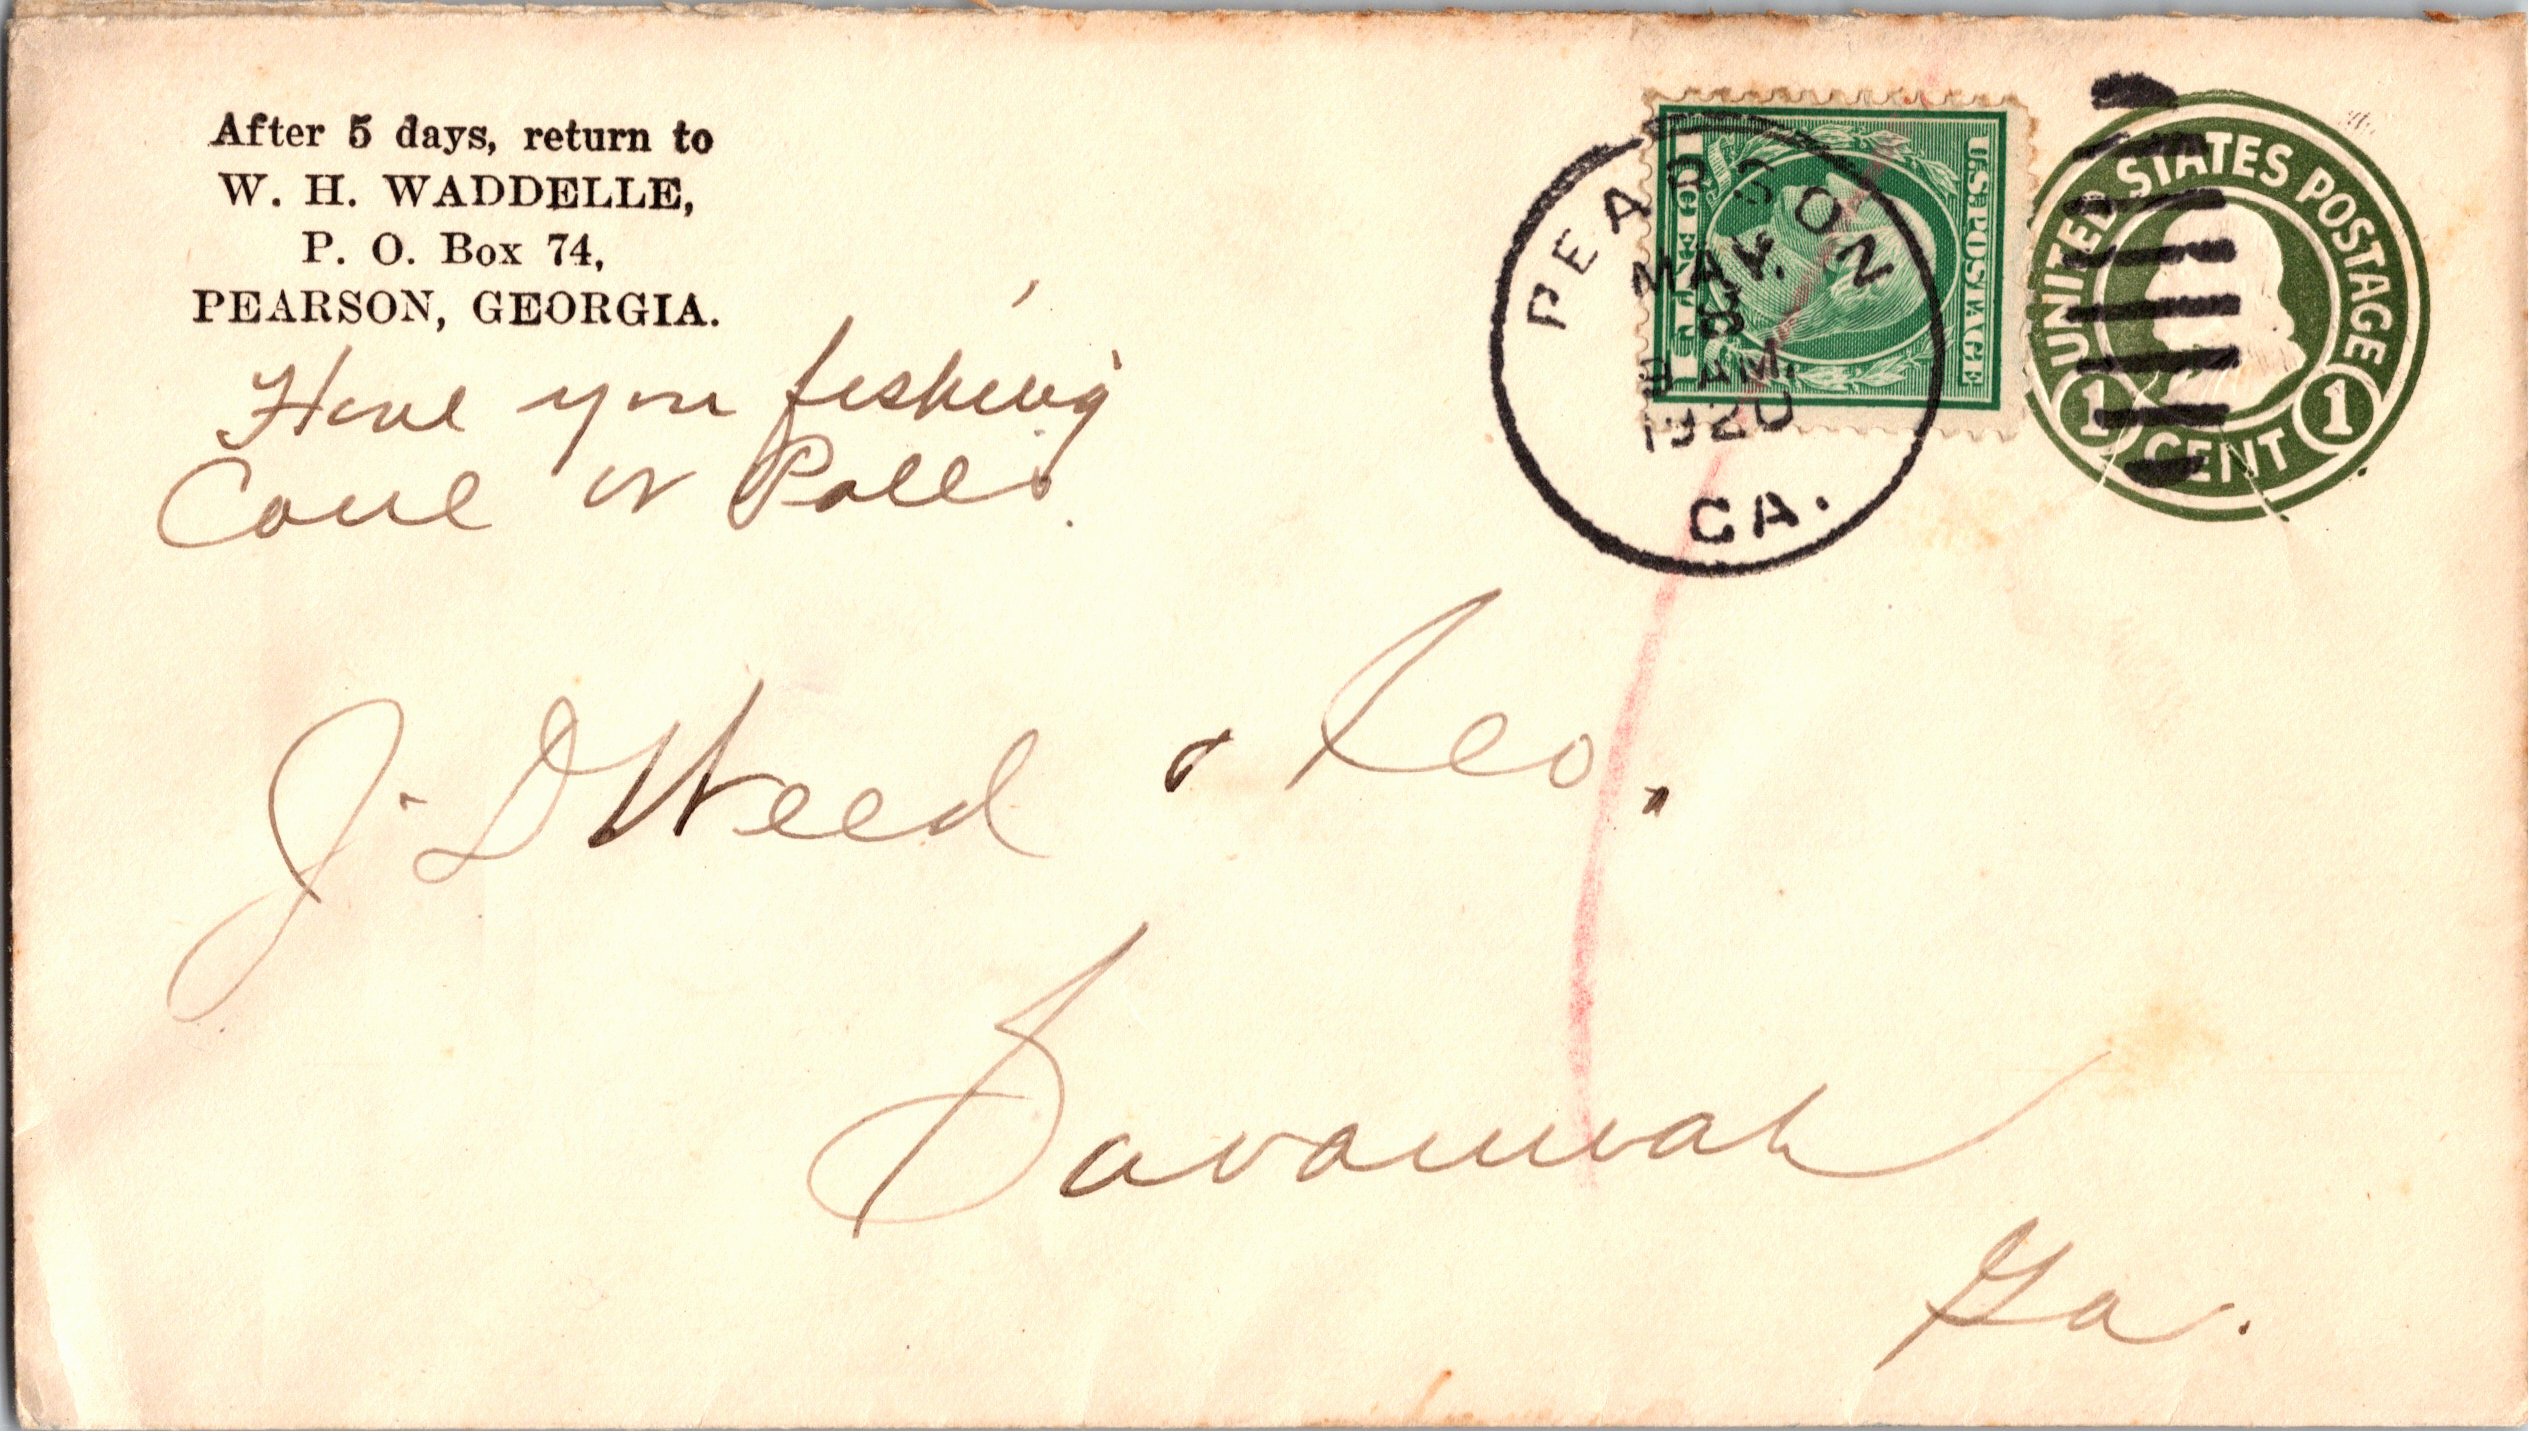 After 5 days, return to
W. H. WADDELLE,
P. O. Box 74,
PEARSON, GEORGIA.
Have you fishing
Cane or Poles.
J. D Weed & Co.
Savannah
Ga.
PEARSON
MAY
8
AM.
1920
GA.
U.S. POSTAGE
1 CENT 1
UNITED STATES POSTAGE
1 CENT 1